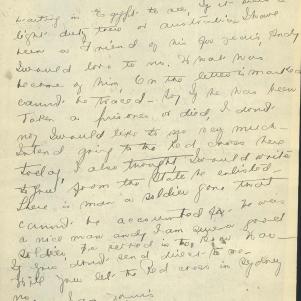 waiting in Egypt to see, if it was a
light duty there or Australia I have
been a Friend of his for years, and
I would love to no. What was
become of him, On the letter is marked
cannot be traced - say if he has been
Taken a prisoner, or died, I dont
no I would like to no very much -
intend going to the Red Cross here
today, I also thought I would write
to you from the State he enlisted -
There is many a soldier gone that
cannot be accounted for. he was
a nice man and I am sure a good
soldier, he retired in the
If you dont send direct to me
Will you let the Red Cross in Sydney
no